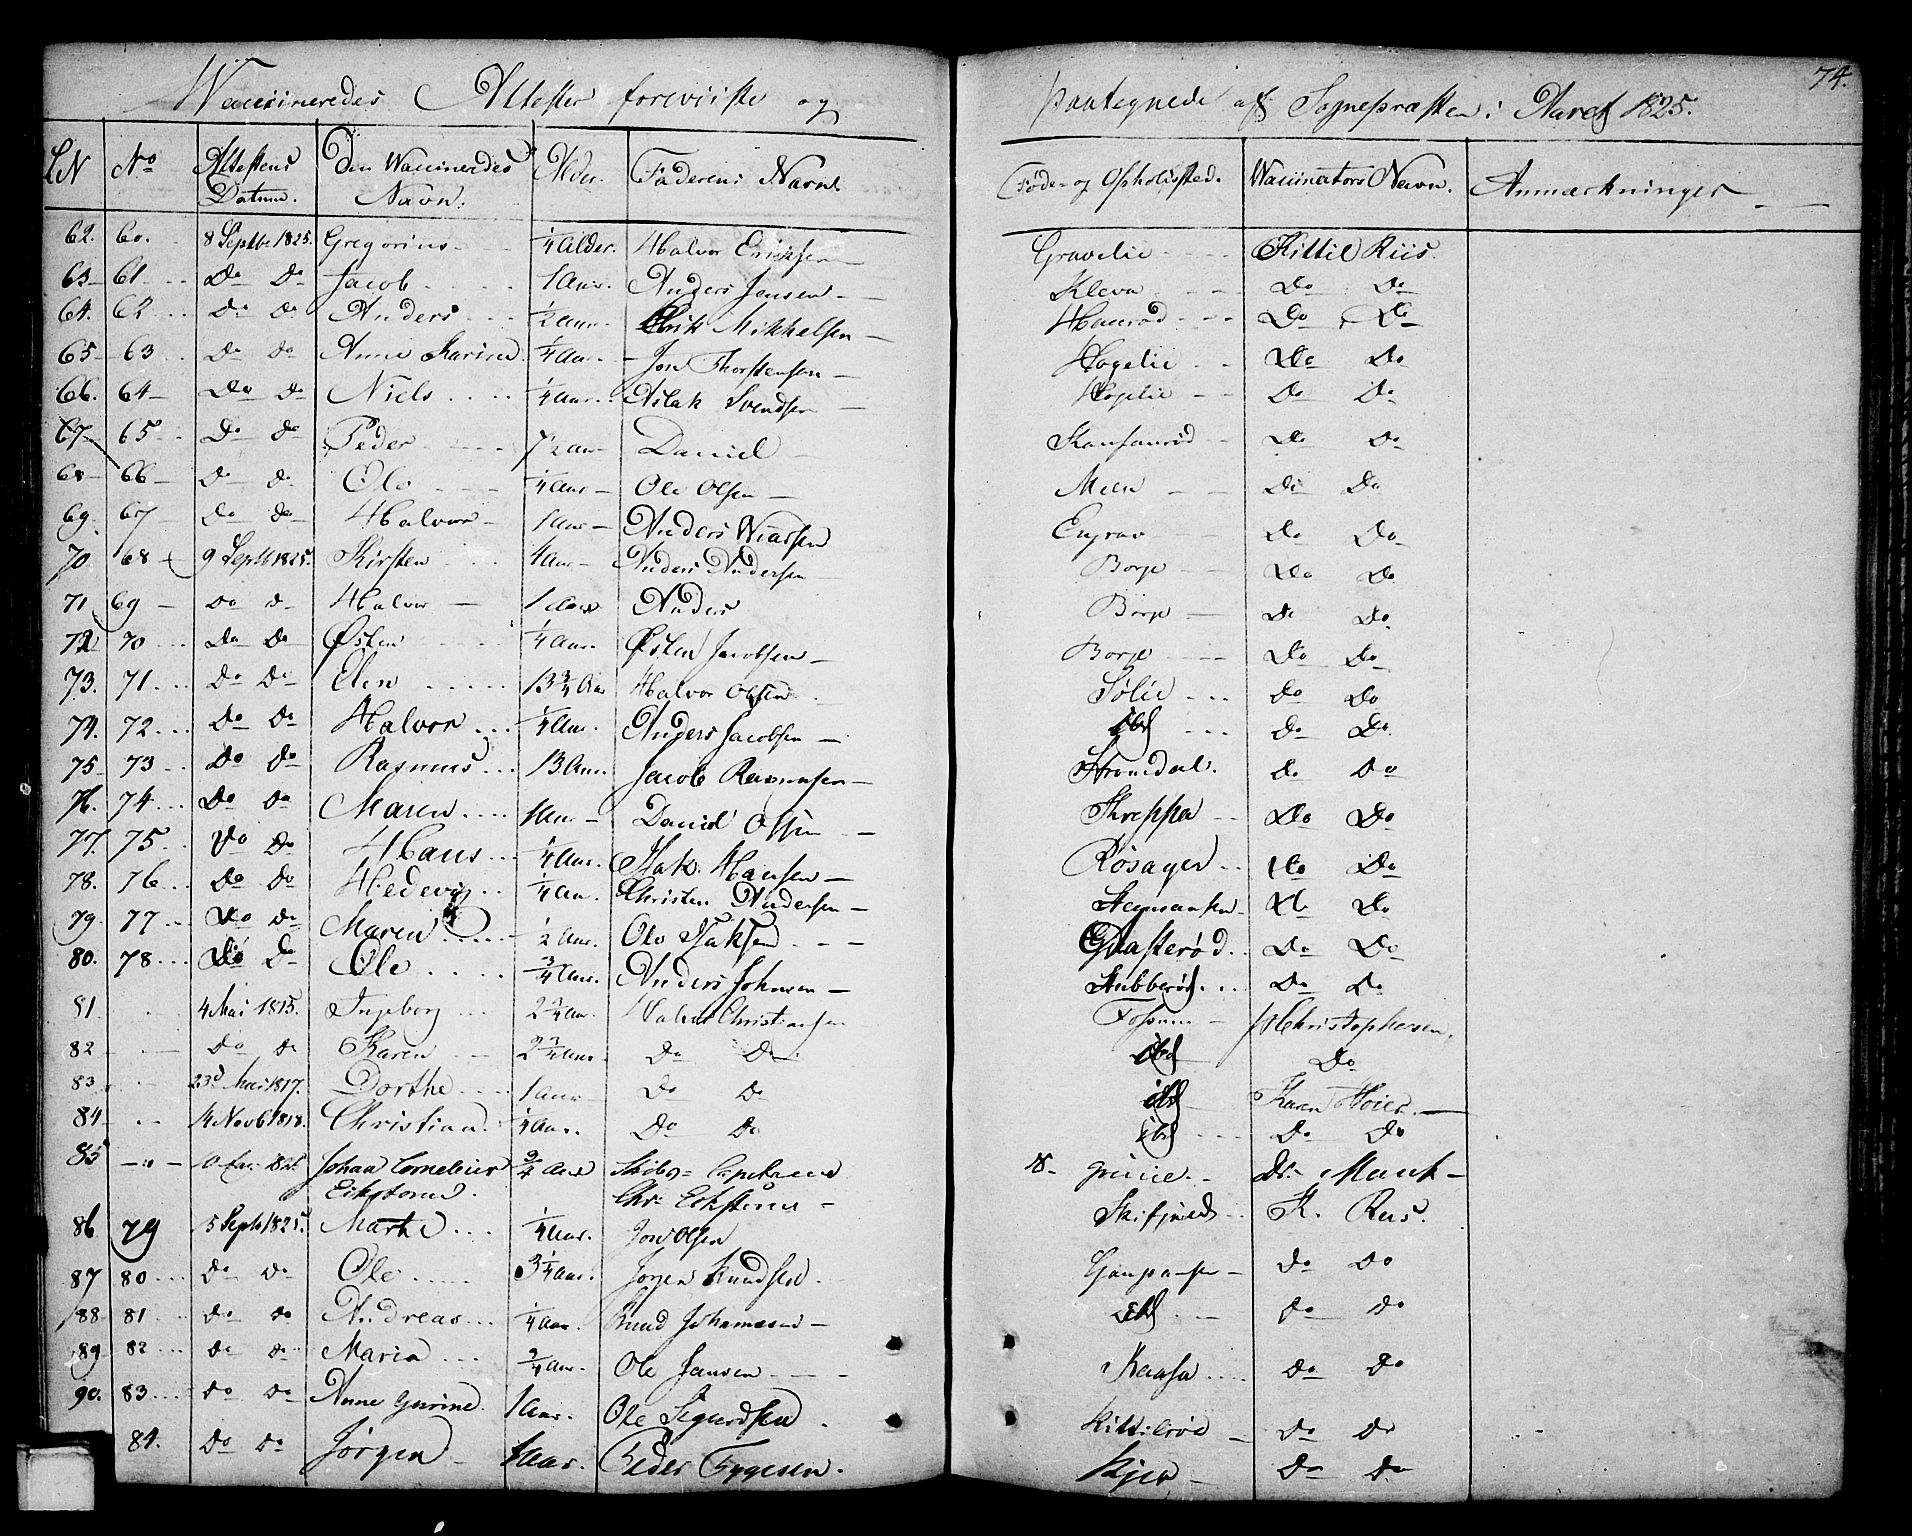 74.
Waccineredes Attester foreviiste og paategnede af Sognepræsten i Aaret 1825.
LN No Attestens Datum. Den Waccineredes Navn. Alder. Faderens Navn. Føde- og Opholdsted. Waccinators Navn. Anmærkninger
62. 60. 8 Septbr 1825. Gregorius 1/4 Alder. Halvor Erichsen Gravelie Kittil Riis.
63 61 Do Do Jacob 1 Aar. Anders Jensen Kleva Do Do
64. 62 Do Do Anders 1/2 Aar. Erik Mikkelsen Do Do
65 63 Do Do Anne Karine 1/4 Aar. Jon Thorstensen Hogelie Do Do
66. 64 Do Do Niels 1/4 Aar. Aslak Svendsen Hogelie Do Do
67 65 Do Do Peder 7 1/2 Aar Daniel Do Do
68 66 Do Do Ole 1/4 Aar Ole Olsen Meen Do Do
69. 67 Do Do Halvor 1 Aar Anders Do Do
70 68 9 Septb 1825. Kirsten 4 Aar Anders Andersen Borge Do Do
71 69 Do Do Halvor 1 Aar Anders Borge Do Do
72 70 Do Do Østen 1/4 Aar. Østen Jacobsen Borge Do Do
73. 71. Do Do Elen 13 3/4 Aar Halvor Olsen Sølie Do Do
74. 72 Do Do Halvor 1/4 Aar. Anders Jacobsen ibd Do Do
75 73 Do Do Rasmus 13 Aar. Jacob Rasmusen Strømdal. Do Do
76. 74 Do Do Maren 1 Aar Daniel Olsen Skreppa Do Do
77. 75 Do Do Hans 1/4 Aar. Isak Hansen Røsager Do Do
78. 76 Do Do Hedevig 1/4 Aar. Christen Andersen Do Do
79. 77 Do Do Maren 1/2 Aar. Ole Isaksen Do Do
80. 78 Do Do Ole 3/4 Aar. Anders Johnsen Stubberød Do Do
81 4 Mai 1815. Ingeborg 2 3/4 Aar. Halvor Christiansen Fossum Christophersen,
82 Do Do Karen 2 3/4 Aar. Do Do ibd Do
83 23d Mai 1817. Dorthe 1 Aar Do Do ibd Karen Høier
84 14 Novb 1818. Christian 1/4 Aar. Do Do ibd Do Do
85 Johan Cornelius Aar Skibs=Capitaine Dr. Munk
Chr:
86 79 5 Septb 1825. Marte 1/4 Aar. Jon Olsen K. Riis.
87 80 Do Do Ole 3 1/4 Aar. Jørgen Knudsen. Do Do
88 81 Do Do Andreas 1/4 Aar. Knud Johannesen ibd Do Do
89 82 Do Do Maria Aar. Ole Jansen Kaasa Do Do
90. 83 Do Do Anne Gurine. 1 Aar. Ole Sigurdsen Kittilrød Do Do
84. Do Do Jørgen 1 Aar. Peder Tygesen. Kjer Do Do